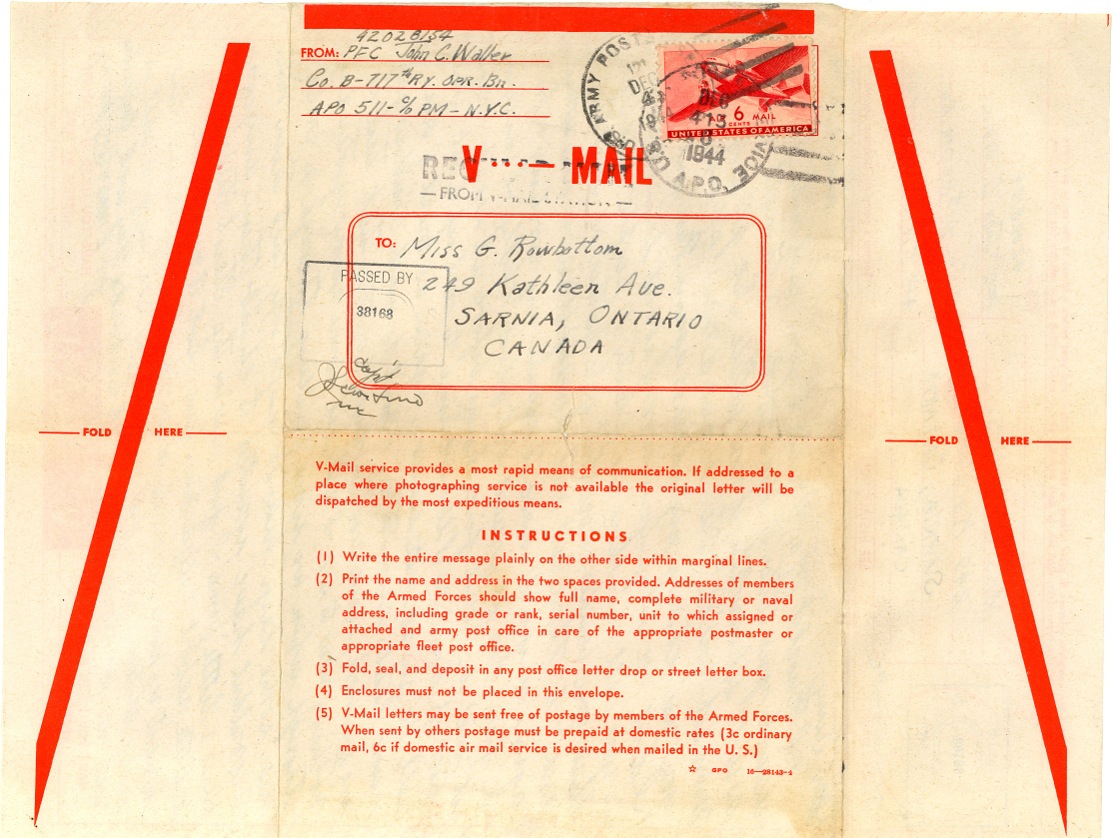 42028154
FROM: PFC John C. Walker
Co. B-717th RY. OPR. Bn.
APO 511-c/o PM-N.Y.C.
U.S. ARMY POSTAL SERVICE
DEC
4
1944
U.S. A.P.O.
DEC
4 13
1944
AIR 6 MAIL
CENTS
UNITED STATES OF AMERICA
V···—MAIL
REGULAR
— FROM V-MAIL STATION —
TO: Miss G. Rowbottom
249 Kathleen Ave.
SARNIA, ONTARIO
CANADA
PASSED BY
38168
Capt
FOLD HERE
FOLD HERE
V-Mail service provides a most rapid means of communication. If addressed to a
place where photographing service is not available the original letter will be
dispatched by the most expeditious means.
INSTRUCTIONS
(1) Write the entire message plainly on the other side within marginal lines.
(2) Print the name and address in the two spaces provided. Addresses of members
of the Armed Forces should show full name, complete military or naval
address, including grade or rank, serial number, unit to which assigned or
attached and army post office in care of the appropriate postmaster or
appropriate fleet post office.
(3) Fold, seal, and deposit in any post office letter drop or street letter box.
(4) Enclosures must not be placed in this envelope.
(5) V-Mail letters may be sent free of postage by members of the Armed Forces.
When sent by others postage must be prepaid at domestic rates (3c ordinary
mail, 6c if domestic air mail service is desired when mailed in the U. S.)
☆ GPO 16—28143-4